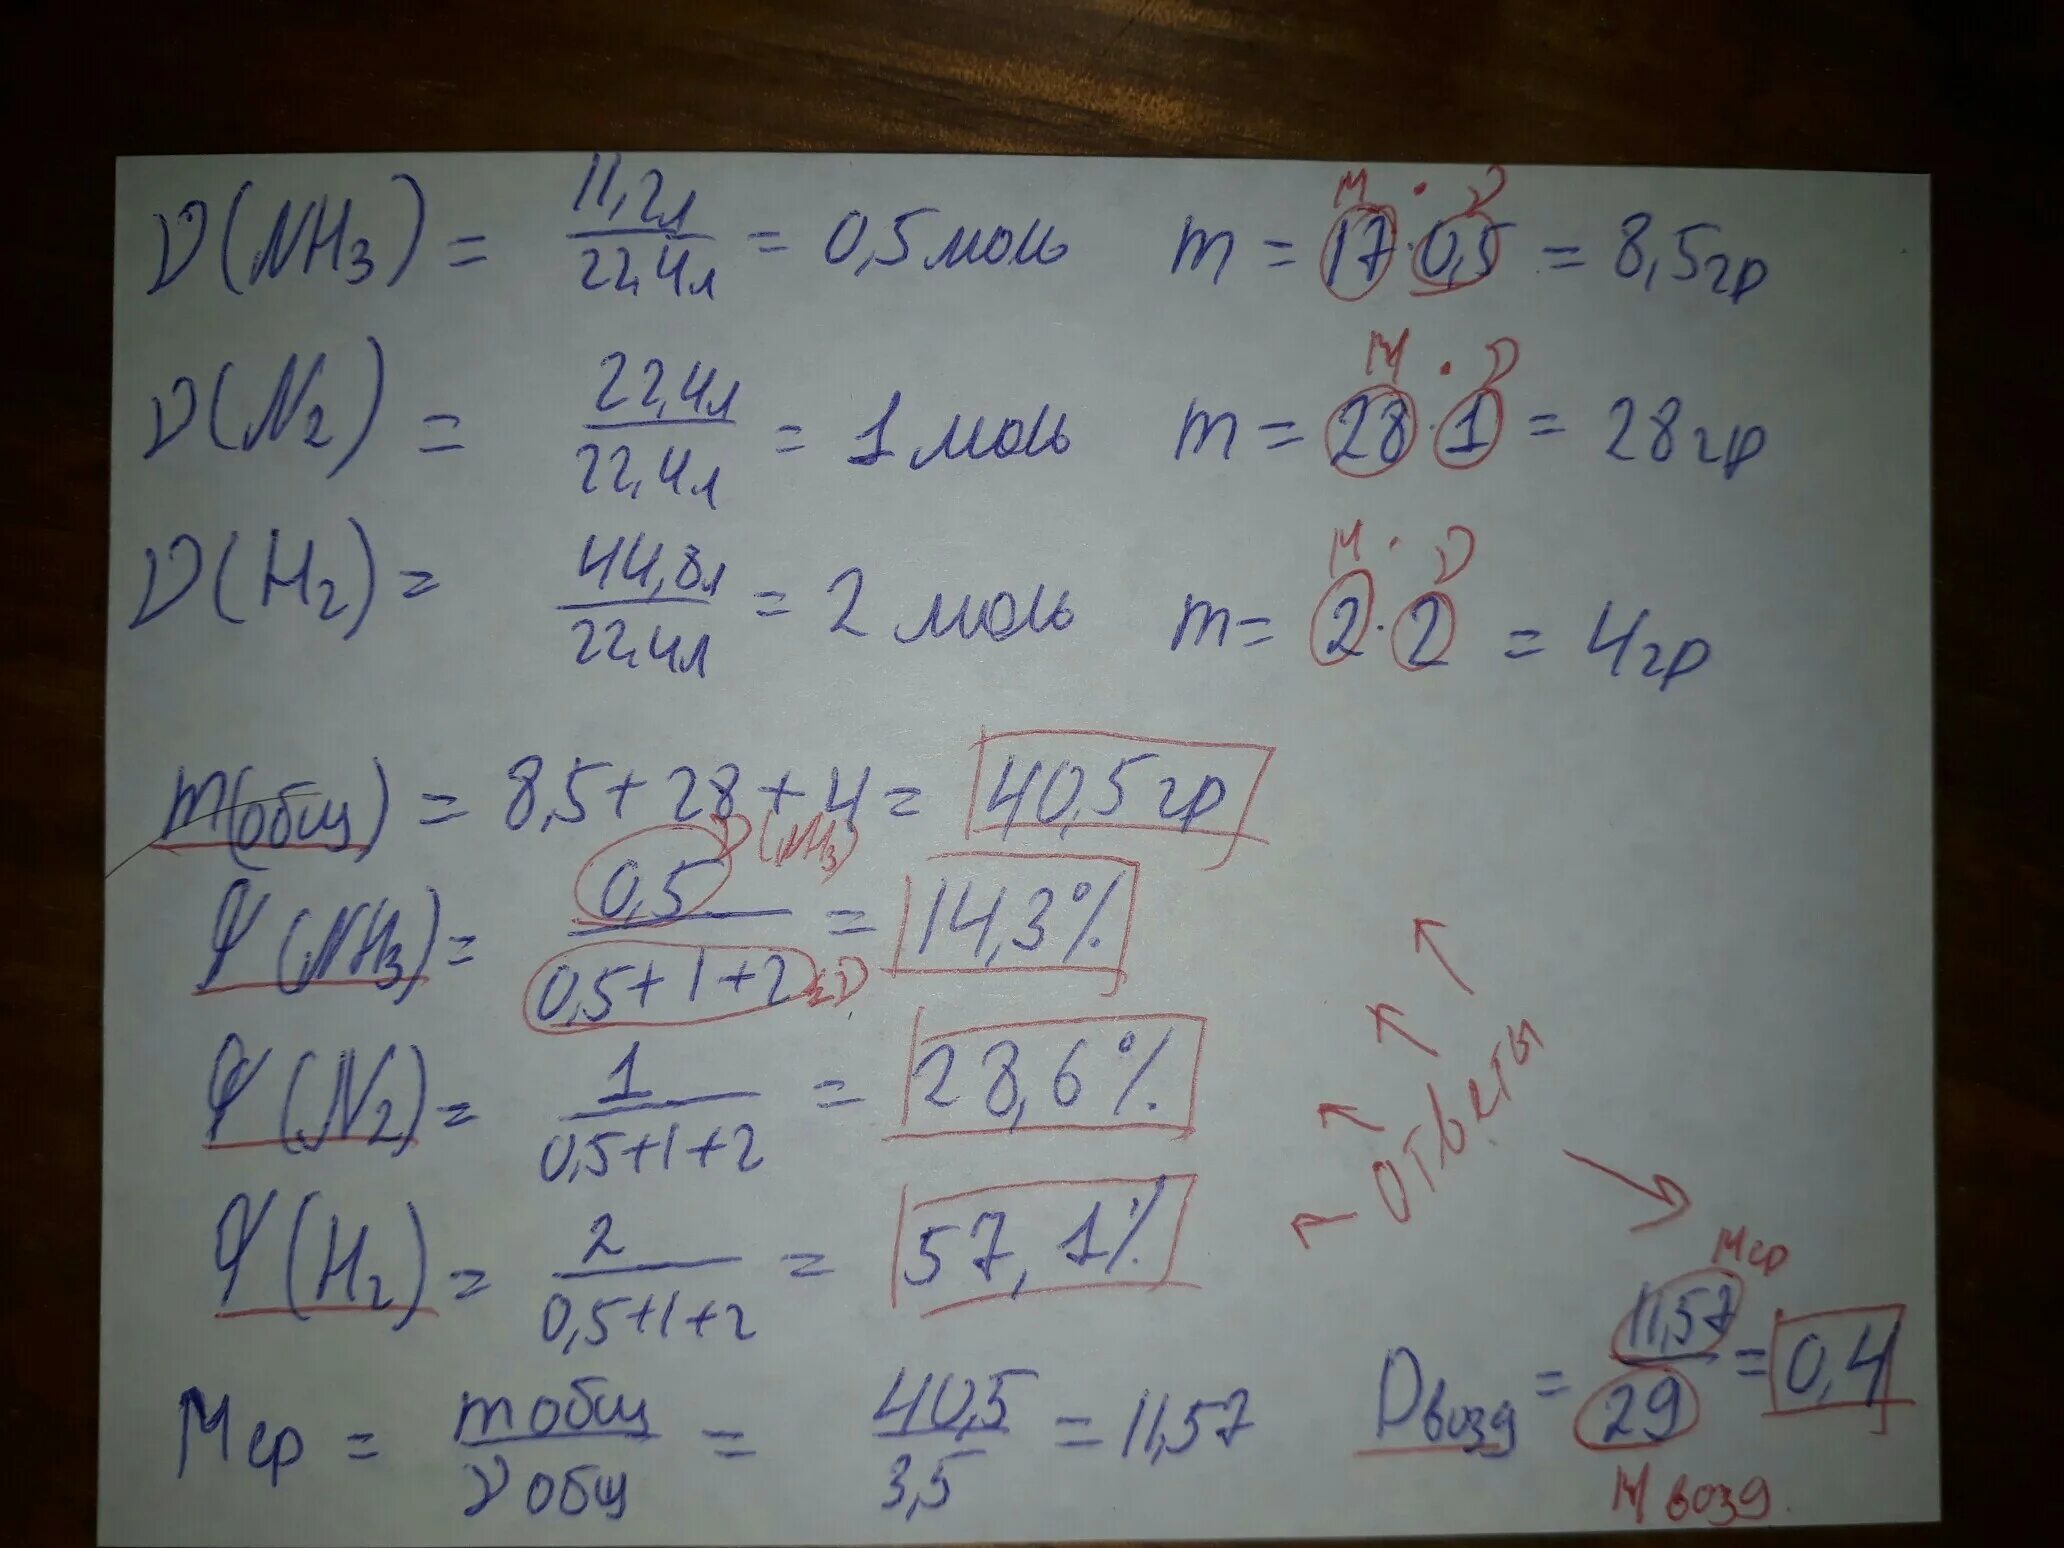 ν(NH3) = 11,2л / 22,4л = 0,5 моль m = 17 · 0,5 = 8,5гр
M · ν
ν(N2) = 22,4л / 22,4л = 1 моль m = 28 · 1 = 28гр
M · ν
ν(H2) = 44,8л / 22,4л = 2 моль m = 2 · 2 = 4гр
M · ν
m(общ) = 8,5 + 28 + 4 = 40,5гр
φ(NH3) = 0,5 / 0,5+1+2 = 14,3%
ν(NH3)
Σν
φ(N2) = 1 / 0,5+1+2 = 28,6%
φ(H2) = 2 / 0,5+1+2 = 57,1%
ответы
Mср = mобщ / νобщ = 40,5 / 3,5 = 11,57
Dвозд = 11,57 / 29 = 0,4
Mср
Mвозд.